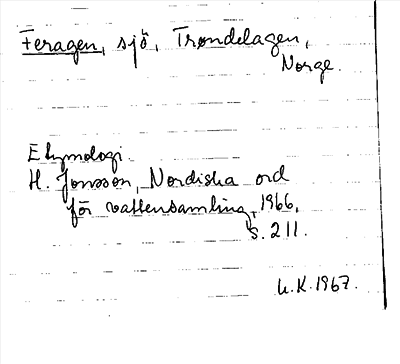 Feragen, sjö, Trøndelagen,
Norge.
Etymologi.
H. Jonsson, Nordiska ord
för vattensamling, 1966,
s. 211.
U.K. 1967.